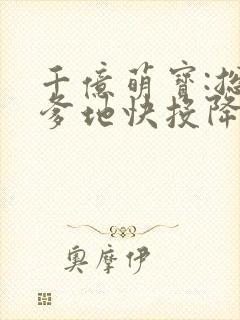 千億萌寶:
爹地快投降
奧摩伊